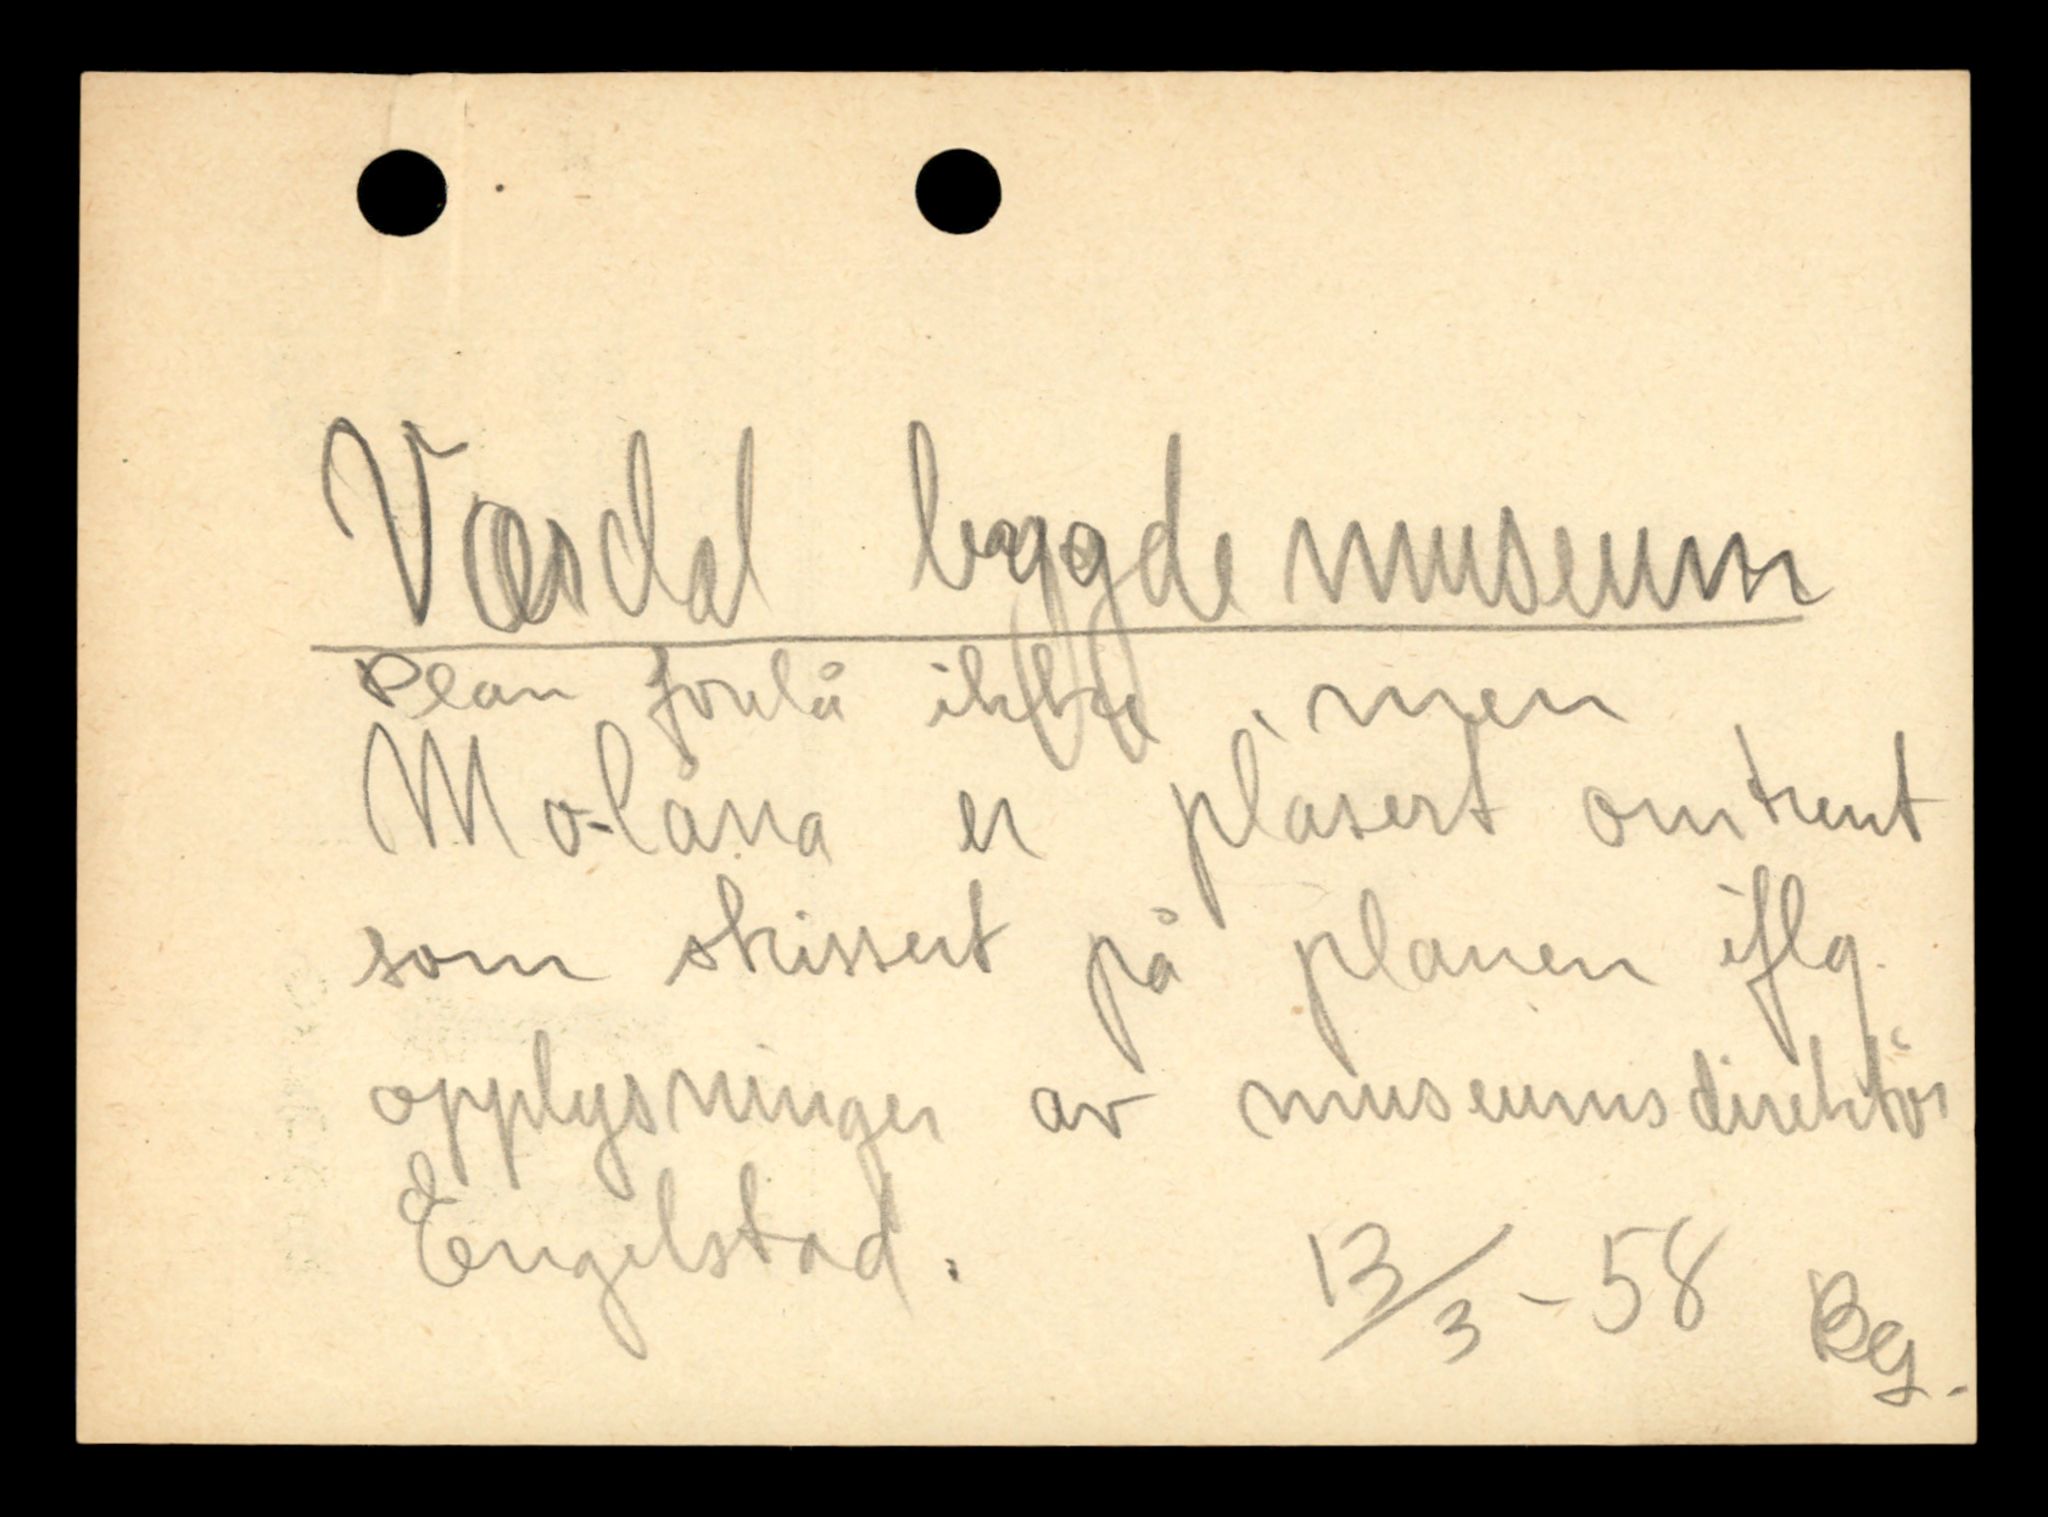 Værdal bygdemuseum
Plan forelå ikke, men
Mo-låna er plasert omtrent
som skissert på planen iflg.
opplysninger av museumsdirektør
Engelstad. 13/3-58 Bg.